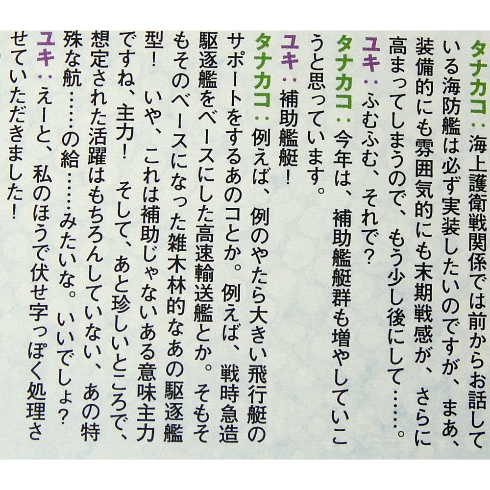 タナカコ：海上護衛戦関係では前からお話して
いる海防艦は必ず実装したいのですが、まあ、
装備的にも雰囲気的にも末期戦感が、さらに
高まってしまうので、もう少し後にして……。
ユキ：ふむふむ、それで？
タナカコ：今年は、補助艦艇群も増やしていこ
うと思っています。
ユキ：補助艦艇！
タナカコ：例えば、例のやたら大きい飛行艇の
サポートをするあのコとか。例えば、戦時急造
駆逐艦をベースにした高速輸送艦とか。そもそ
もそのベースになった雑木林的なあの駆逐艦
型！　いや、これは補助じゃないある意味主力
ですね、主力！　そして、あと珍しいところで、
想定された活躍はもちろんしていない、あの特
殊な航……の給……みたいな。いいでしょ？
ユキ：えーと、私のほうで伏せ字っぽく処理さ
せていただきました！